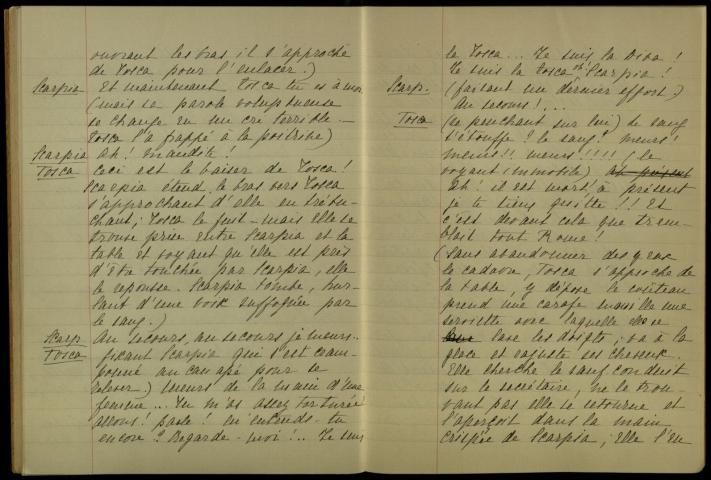 ouvrant les bras il s'approche
de Tosca pour l'enlacer.)
Scarpia Et maintenant Tosca tu es à moi
(mais sa parole voluptueuse
se change en un cri terrible —
Tosca l'a frappé à la poitrine)
Scarpia Ah! maudite!
Tosca Ceci est le baiser de Tosca!
Scarpia étend le bras vers Tosca
s'approchant d'elle en trébu-
chant; Tosca le fuit – mais elle se
trouve prise entre Scarpia et la
table et voyant qu'elle est près
d'être touchée par Scarpia, elle
le repousse. Scarpia tombe, hur-
lant d'une voix suffoquée par
le sang.)
Scarp Au secours, au secours je meurs..
Tosca fixant Scarpia qui s'est cram-
ponné au canapé pour se
relever) Meurs de la main d'une
femme .. Tu m'as assez torturée
allons! parle! m'entends-tu
encore? Regarde-moi!.. Je suis
la Tosca ... Je suis la Diva!
Je suis la Tosca oh! Scarpia!
Scarp. (faisant un dernier effort.)
Au secours!...
Tosca (se penchant sur lui) Le sang
t'étouffe? le sang? meurs!
meurs!! meurs!!!! (le
voyant immobile) Ah présent
Ah! il est mort! à présent
je te tiens quitte!! Et
c'est devant cela que trem-
blait tout Rome!
(Sans abandonner des yeux
le cadavre, Tosca s'approche de
la table, y dépose le couteau
prend une carafe mouille une
serviette avec laquelle elle se
lave les doigts; va à la
glace et rajuste ses cheveux.
Elle cherche le sauf conduit
sur le secrétaire, ne le trou-
vant pas elle se retourne et
l'aperçoit dans la main
crispée de Scarpia; elle l'en